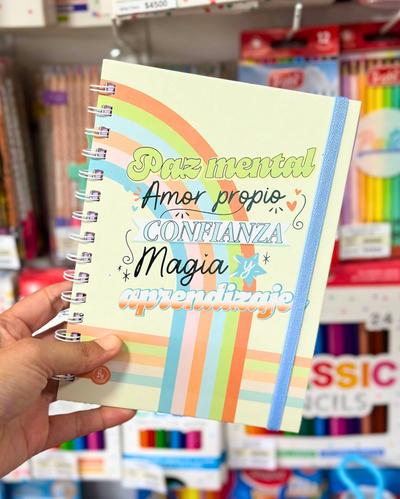 $4500
12
Paz mental
Amor propio
CONFIANZA
Magia y
aprendizaje
24